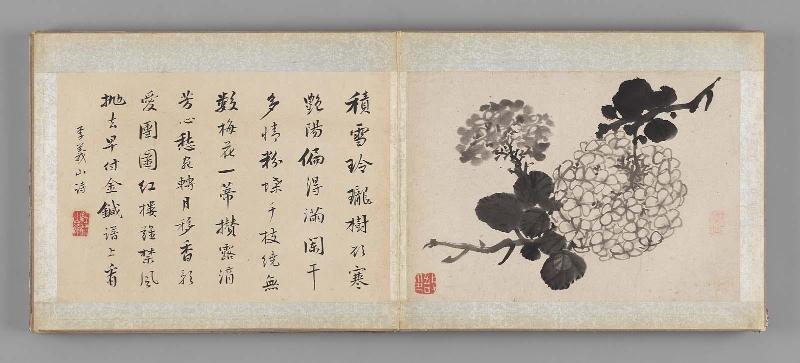 積雪玲瓏樹影寒
艷陽偏得滿闌干
多情粉蝶千枝繞無
數梅花一蒂攢露滴
芳心愁宛轉月移香影
愛團圞紅樓強禁風
拋去早付金鍼譜上看
李義山詩